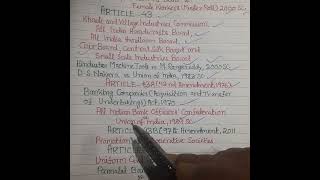 Female Workers (Muster Roll), 2000 SC
ARTICLE - 43
Khadi and Village Industries Commission,
All India Handicrafts Board,
All India Handloom Board,
Coir Board, Central Silk Board and
Small Scale Industries Board,
Hindustan Machine Tools vs M. Rangareddy, 2000 SC
D.S Nakara vs Union of India, 1983 SC
ARTICLE - 43A (42nd Amendment, 1976)
Banking Companies (Acquisition and Transfer
of Undertakings) Act, 1970
All Indian Bank Officers' Confederation
Union of India, 1989 SC
ARTICLE 43B (97th Amendment, 2011
Promotion Co-operative Societies
ARTICLE
Uniform
Personal